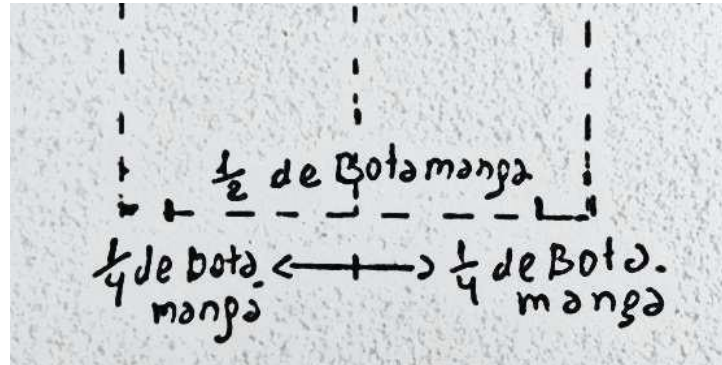 1/2 de Botamanga
1/4 de bota.
manga
1/4 de Bota.
manga